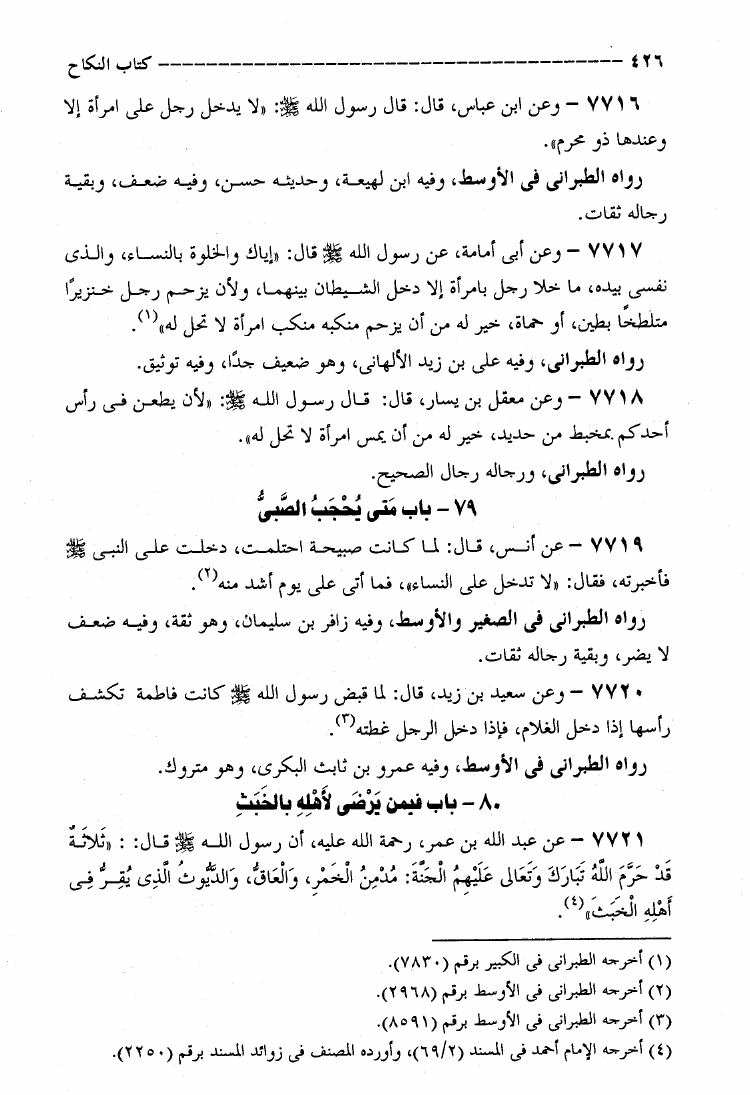 ٤٢٦ ---------------------------------------- كتاب النكاح
٧٧١٦ – وعن ابن عباس، قال: قال رسول الله ﷺ: «لا يدخل رجل على امرأة إلا
وعندها ذو محرم».
رواه الطبرانى فى الأوسط، وفيه ابن لهيعة، وحديثه حسن، وفيه ضعف، وبقية
رجاله ثقات.
٧٧١٧ – وعن أبى أمامة، عن رسول الله ﷺ قال: «إياك والخلوة بالنساء، والذى
نفسى بيده، ما خلا رجل بامرأة إلا دخل الشيطان بينهما، ولأن يزحم رجل خنزيرًا
متلطخًا بطين، أو حماة، خير له من أن يزحم منكبه منكب امرأة لا تحل له»(١).
رواه الطبرانى، وفيه على بن زيد الألهانى، وهو ضعيف جدًا، وفيه توثيق.
٧٧١٨ – وعن معقل بن يسار، قال: قال رسول الله ﷺ: «لأن يطعن فى رأس
أحدكم بمخبط من حديد، خير له من أن يمس امرأة لا تحل له».
رواه الطبرانى، ورجاله رجال الصحيح.
٧٩ – باب مَتى يُحْجَبُ الصَّبىُّ
٧٧١٩ – عن أنس، قال: لما كانت صبيحة احتلمت، دخلت على النبى ﷺ
فأخبرته، فقال: «لا تدخل على النساء»، فما أتى على يوم أشد منه(٢).
رواه الطبرانى فى الصغير والأوسط، وفيه زافر بن سليمان، وهو ثقة، وفيه ضعف
لا يضر، وبقية رجاله ثقات.
٧٧٢٠ – وعن سعيد بن زيد، قال: لما قبض رسول الله ﷺ كانت فاطمة تكشف
رأسها إذا دخل الغلام، فإذا دخل الرجل غطته(٣).
رواه الطبرانى فى الأوسط، وفيه عمرو بن ثابث البكرى، وهو متروك.
٨٠ – باب فيمن يَرْضَى لأَهْلِهِ بالخَبَثِ
٧٧٢١ – عن عبد الله بن عمر، رحمة الله عليه، أن رسول الله ﷺ قال: : «ثَلاثَةٌ
قَدْ حَرَّمَ اللَّهُ تَبَارَكَ وَتَعَالى عَلَيْهِمُ الْجَنَّةَ: مُدْمِنُ الْخَمْرِ، وَالْعَاقُّ، وَالدَّيُّوثُ الَّذِى يُقِرُّ فِى
أَهْلِهِ الْخَبَثَ»(٤).
(١) أخرجه الطبرانى فى الكبير برقم (٧٨٣٠).
(٢) أخرجه الطبرانى فى الأوسط برقم (٢٩٦٨).
(٣) أخرجه الطبرانى فى الأوسط برقم (٨٥٩١).
(٤) أخرجه الإمام أحمد فى المسند (٦٩/٢)، وأورده المصنف فى زوائد المسند برقم (٢٢٥٠).